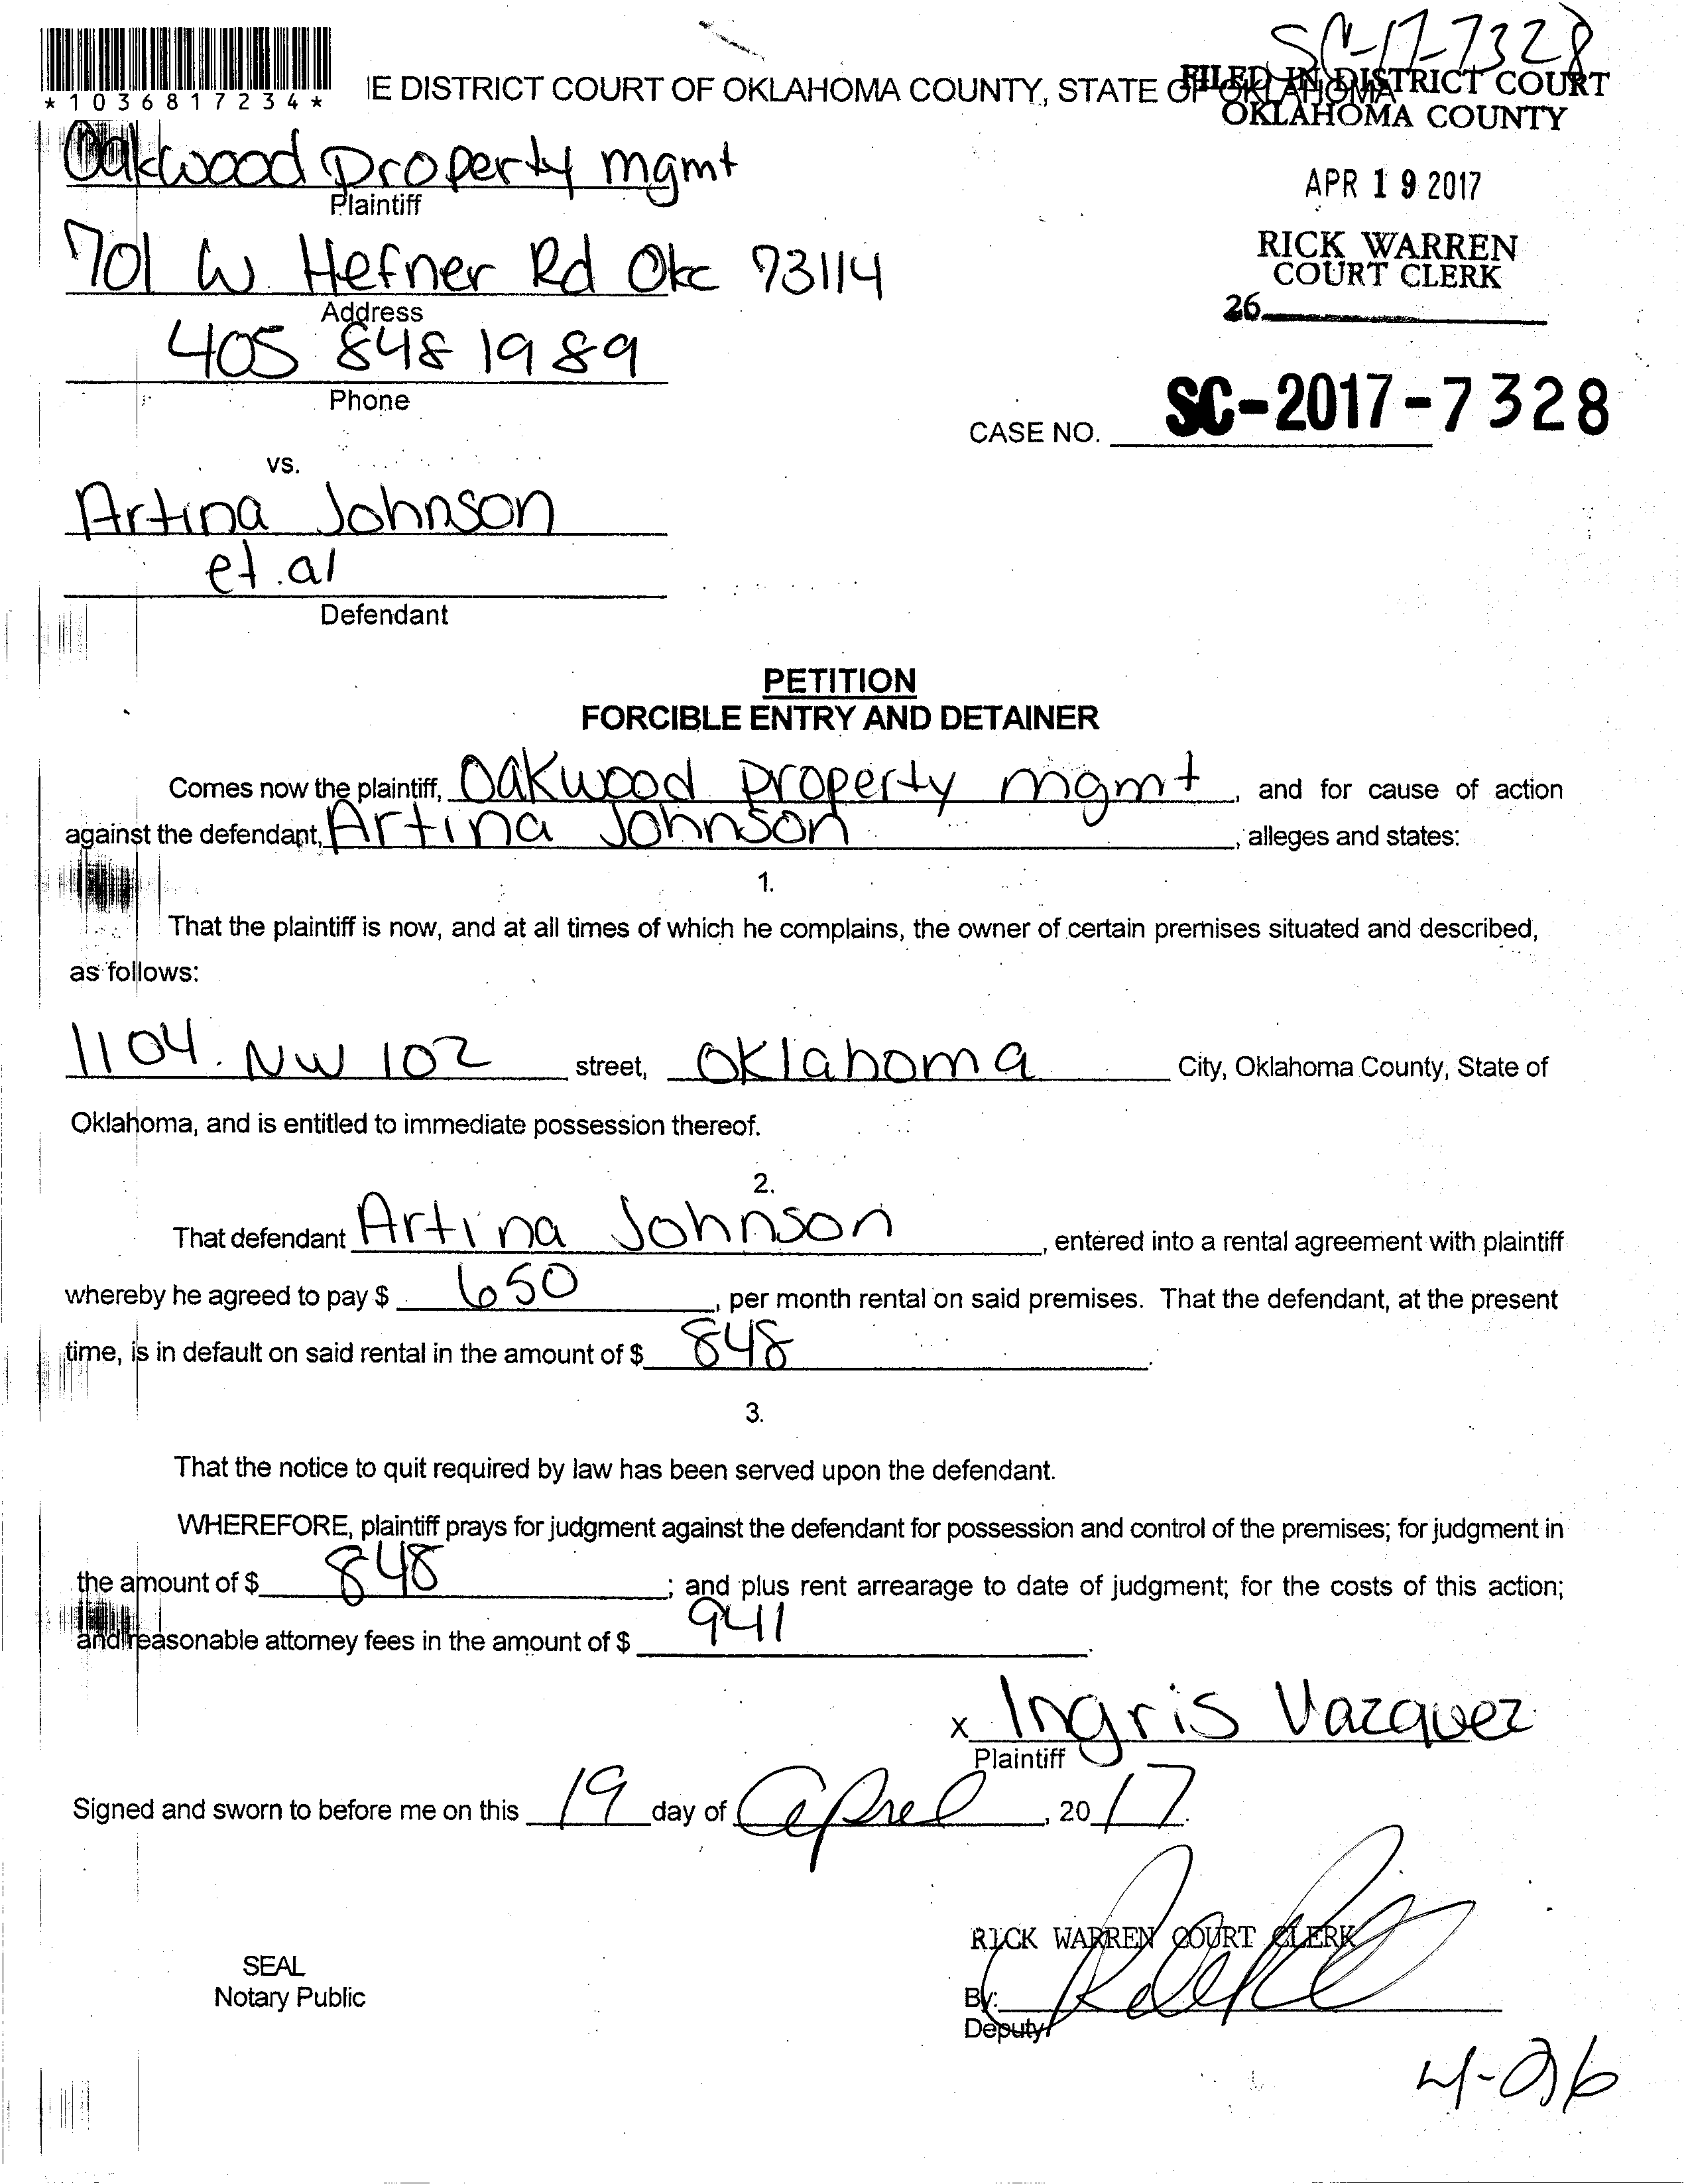 SC-17-7328
*1036817234*
IE DISTRICT COURT OF OKLAHOMA COUNTY, STATE OF OKLAHOMA
FILED IN DISTRICT COURT
OKLAHOMA COUNTY
Oakwood Property mgmt
Plaintiff
APR 19 2017
701 W. Hefner Rd Okc 73114
Address
RICK WARREN
COURT CLERK
26
405 848 1989
Phone
CASE NO. SC-2017-7328
vs.
Artina Johnson
et.al
Defendant
PETITION
FORCIBLE ENTRY AND DETAINER
Comes now the plaintiff, Oakwood property mgmt, and for cause of action
against the defendant, Artina Johnson, alleges and states:
1.
That the plaintiff is now, and at all times of which he complains, the owner of certain premises situated and described,
as follows:
1104. NW 102 street, Oklahoma City, Oklahoma County, State of
Oklahoma, and is entitled to immediate possession thereof.
2.
That defendant Artina Johnson, entered into a rental agreement with plaintiff
whereby he agreed to pay $ 650, per month rental on said premises. That the defendant, at the present
time, is in default on said rental in the amount of $ 848.
3.
That the notice to quit required by law has been served upon the defendant.
WHEREFORE, plaintiff prays for judgment against the defendant for possession and control of the premises; for judgment in
the amount of $ 848; and plus rent arrearage to date of judgment; for the costs of this action;
and reasonable attorney fees in the amount of $ 941.
x Ingris Vazquez
Plaintiff
Signed and sworn to before me on this 19 day of April, 2017.
RICK WARREN COURT CLERK
SEAL
Notary Public
By:
Deputy
4-26